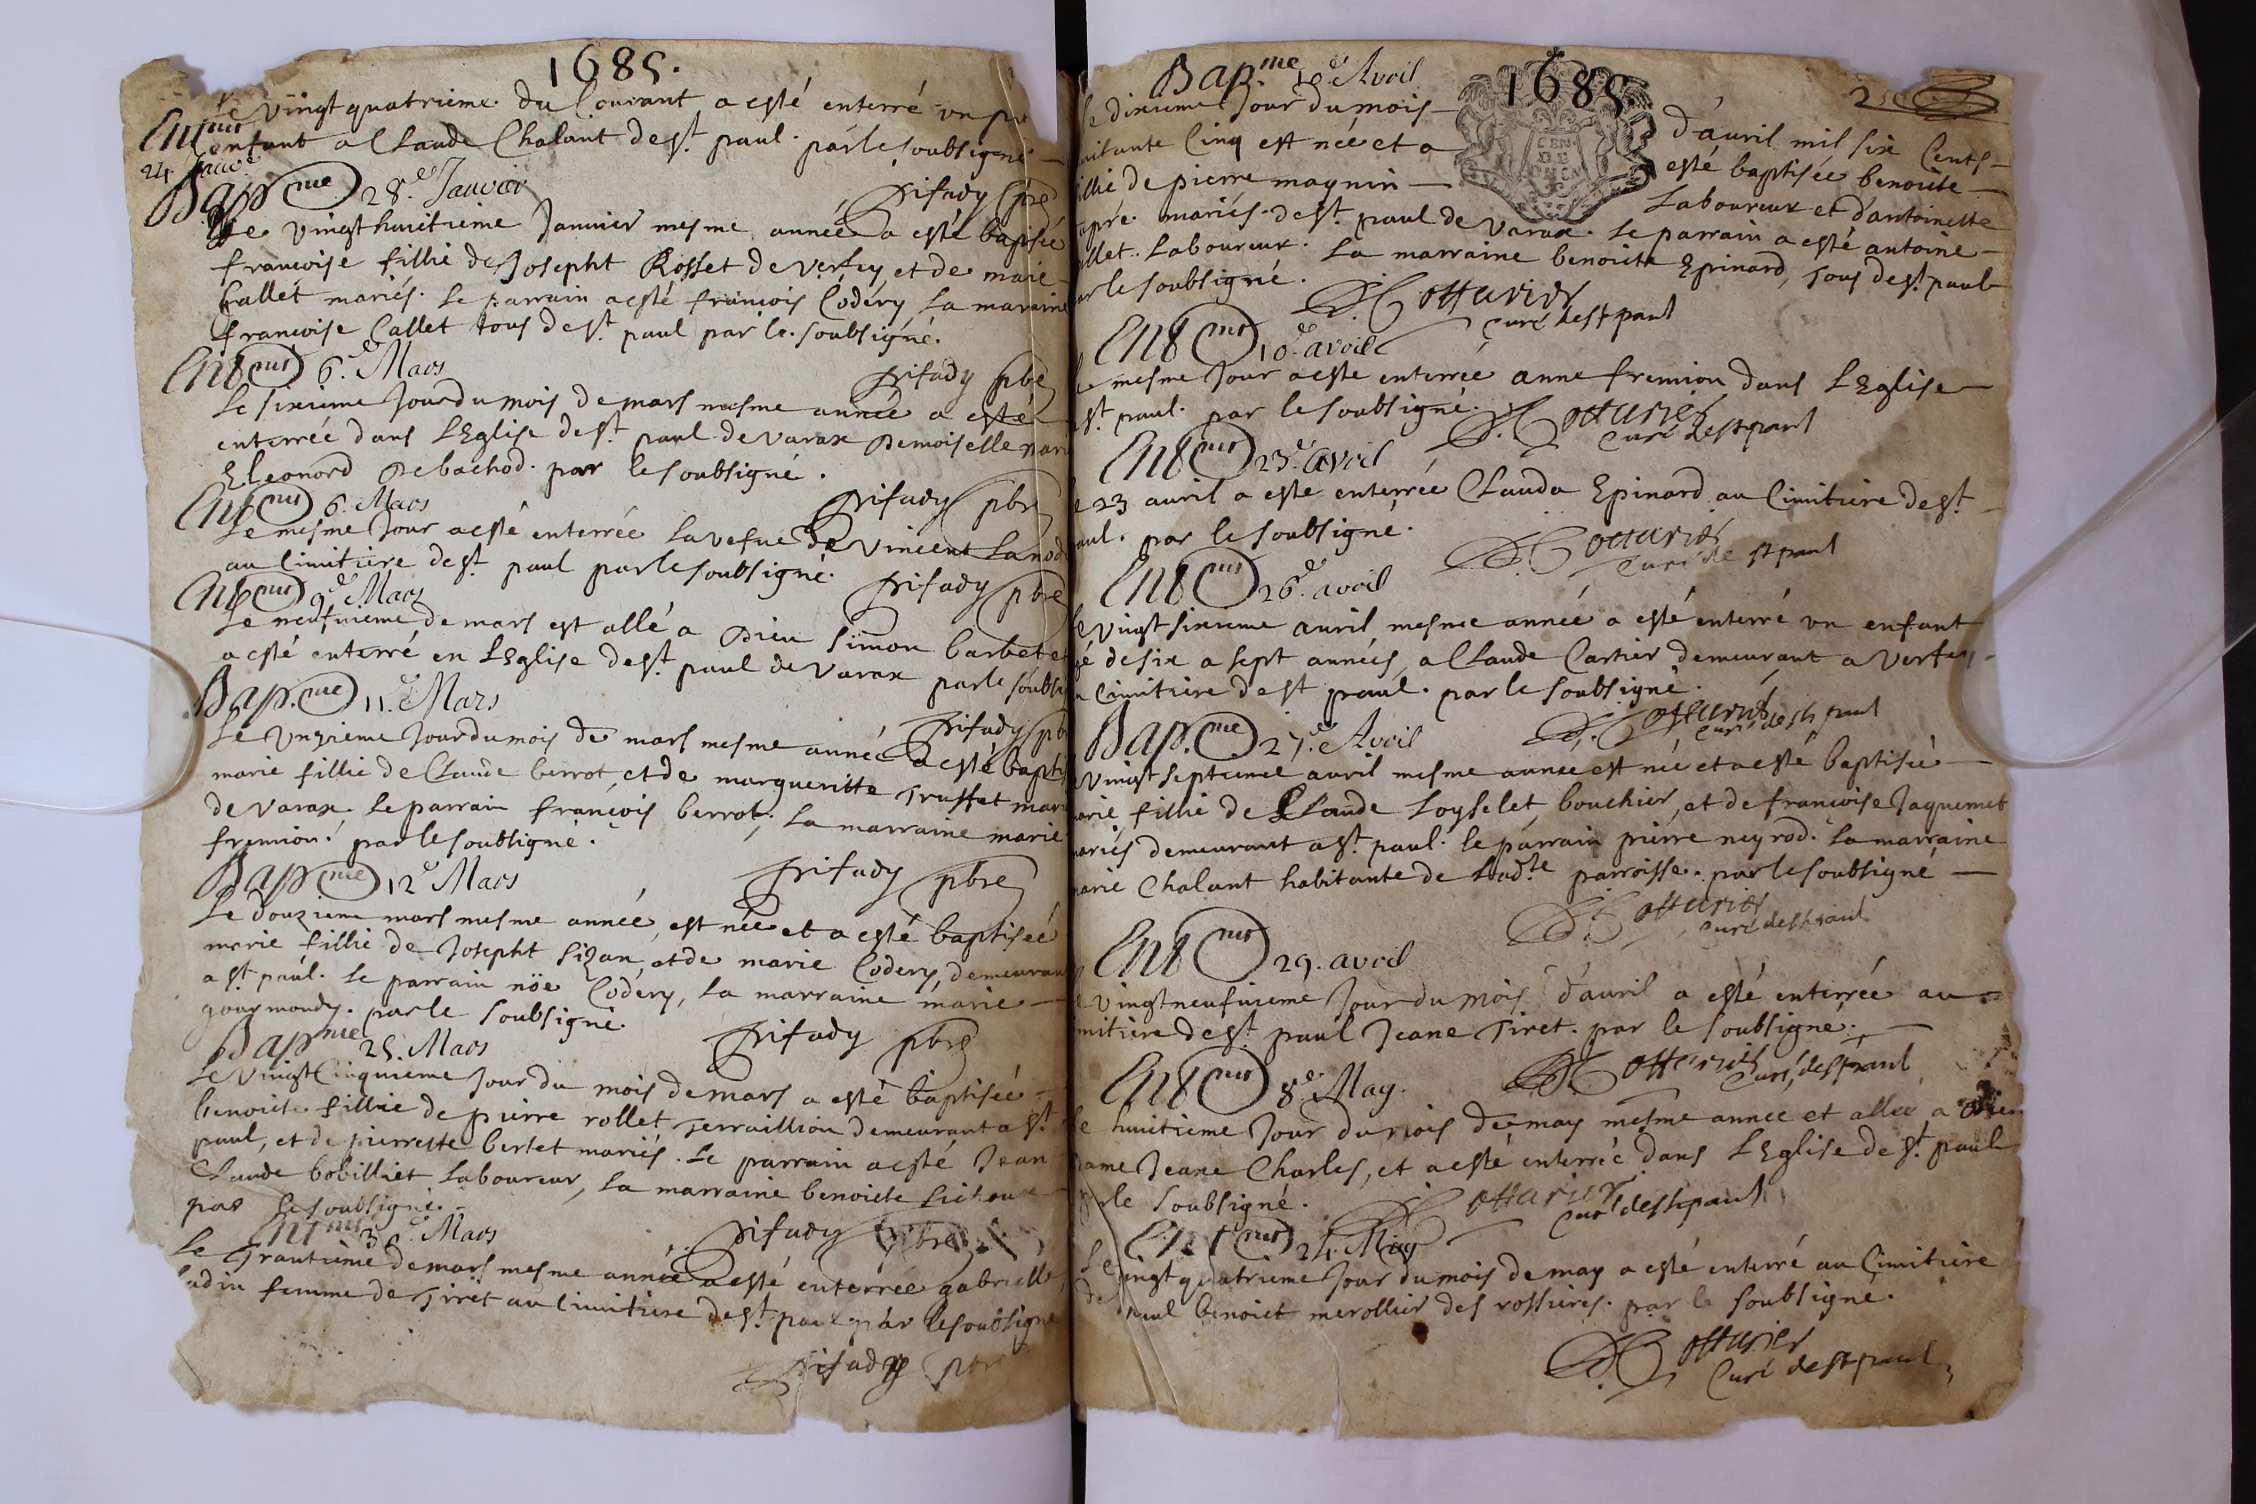 1685.
Le vingt quatrieme du Courant a esté enterré un
Ent.mt
enfant a Claude Chalant de St. paul. par le soubsigné
24 Janv.
Bap.me 28.e Janvier
prifady pbre
Le vingt huictieme Janvier mesme année a esté baptisée
francoise fillie de Josepht Rosset de Verfey et de marie
Callet mariés. Le parrain a esté francois Codery La maraine
francoise Callet tous de St. paul par le soubsigné.
Ent.mt 6.e Mars
prifady pbre
Le sixieme Jour du mois de mars mesme année a esté
enterrée dans L'Eglise de St. paul de varax Demoiselle
Eleonord Debachod. par le soubsigné.
Ent.mt 6. Mars
prifady pbre
Le mesme Jour a esté enterrée La vefue de Vincent
au Cimitiere de St. paul par le soubsigné.
prifady pbre
Ent.mt 9.e Mars
Le neufuieme de mars est allé a Dieu Simon barbet et
a esté enterré en L'Eglise de St. paul de varax par le soubsi
Bap.me 11.e Mars
prifady pbre
Le unzieme Jour du mois de mars mesme année a esté baptis
marie fillie de Claude berrot et de margueritte Truffet mari
de varax. Le parrain francois berrot, La marraine marie
fremion. par le soubsigné.
prifady pbre
Bap.me 12.e Mars
Le douzieme mars mesme année, est née et a esté baptisée
marie fillie de Josepht Sizan, et de marie Codery, demeurant
a St. paul. Le parrain nöe Codery, La marraine marie
gourmondy. par le soubsigné.
prifady pbre
Bap.me 25. Mars
Le vingt Cinquieme Jour du mois de mars a esté baptisée
benoite fillie de pierre rollet Terraillion demeurant a St.
paul, et de pierrette bertet mariés. Le parrain a esté Jean
Claude bobilliet Laboureur, La marraine benoicte
par le soubsigné.
prifady pbre
Ent.mt 30.e Mars
Le Trantieme de mars mesme année a esté enterrée gabrielle
femme de Tiret au Cimitiere de St. paul par le soubsigné
prifady pbre
Bap.me 10.e Avril
1685.
Le dixieme Jour du mois d'auril mil six Cents
uitante Cinq est née et a esté baptisée benoicte
fillie de pierre magnin Laboureux et d'antoinette
mariés de St. paul de varax. Le parrain a esté antoine
Laboureux. La marraine benoicte Epinard, Tous de St. paul
par le soubsigné.
Cotturier
Curé de St paul
Ent.mt 10.e avril
Le mesme Jour a este enterrée anne fremion dans L'Eglise
St. paul. par le soubsigné.
Cotturier
Curé de St paul
Ent.mt 23.e avril
Le 23 auril a este enterrée Clauda Epinard au Cimitiere de St.
paul. par le soubsigné.
Cotturier
Curé de St paul
Ent.mt 26.e avril
Le vingt sixieme auril mesme année a esté enterré un enfant
agé de six a sept années, a Claude Cartier demeurant a Verfey
Cimitiere de St paul. par le soubsigné.
Cotturier
Curé de St paul
Bap.me 27.e Avril
vingt septieme auril mesme année est née et a esté baptisée
marie fillie de Claude Loyselet, bouchier, et de francoise Jaquemet
mariés demeurant a St. paul. le parrain pierre neyrod. La marraine
marie Chalant habitante de Ladte parroisse. par le soubsigné
Cotturier
Curé de St paul
Ent.mt 29. avril
vingt neufuieme Jour du mois d'auril a esté enterrée au
Cimitiere de St. paul Jeane Tiret. par le soubsigné.
Cotturier
Curé de St paul
Ent.mt 8.e May.
Le huitieme Jour du mois de may mesme année et allée a Dieu
Dame Jeane Charles, et a esté enterrée dans L'Eglise de St. paul
par le soubsigné.
Cotturier
Curé de St paul
Ent.mt 24. May
Le vingt quatrieme Jour du mois de may a esté enterré au Cimitiere
de St paul benoict merollier des rossieres. par le soubsigné.
Cotturier
Curé de St paul